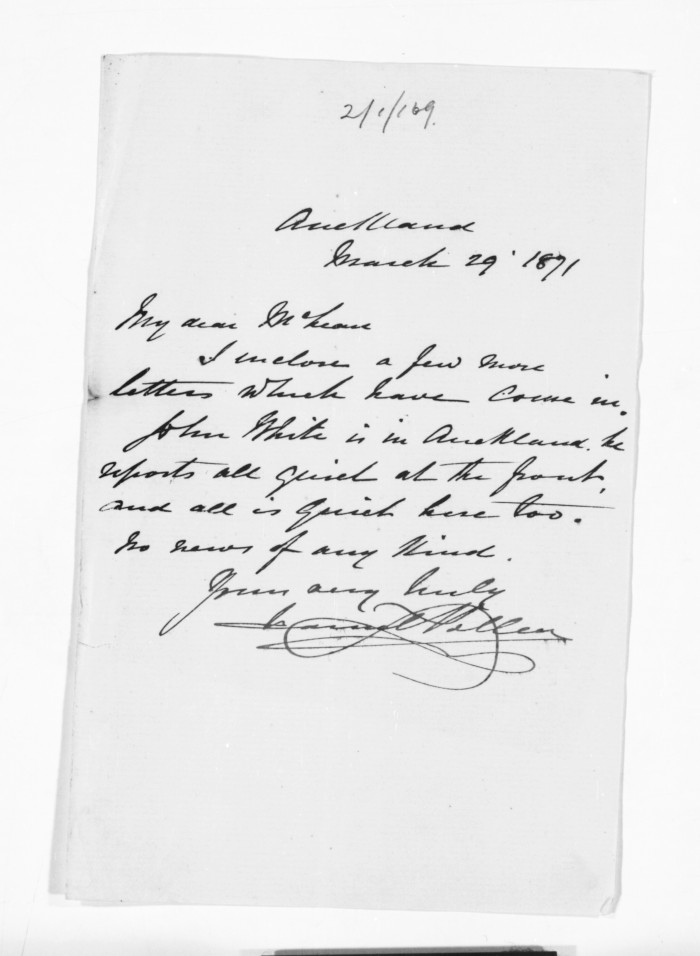 2/1/169.
Auckland
March 29 1871
My dear McLean
I inclose a few more
letters which have come in.
John White is in Auckland. he
reports all quiet at the front,
and all is quiet here too.
No news of any kind.
Yours very truly
Daniel Pollen